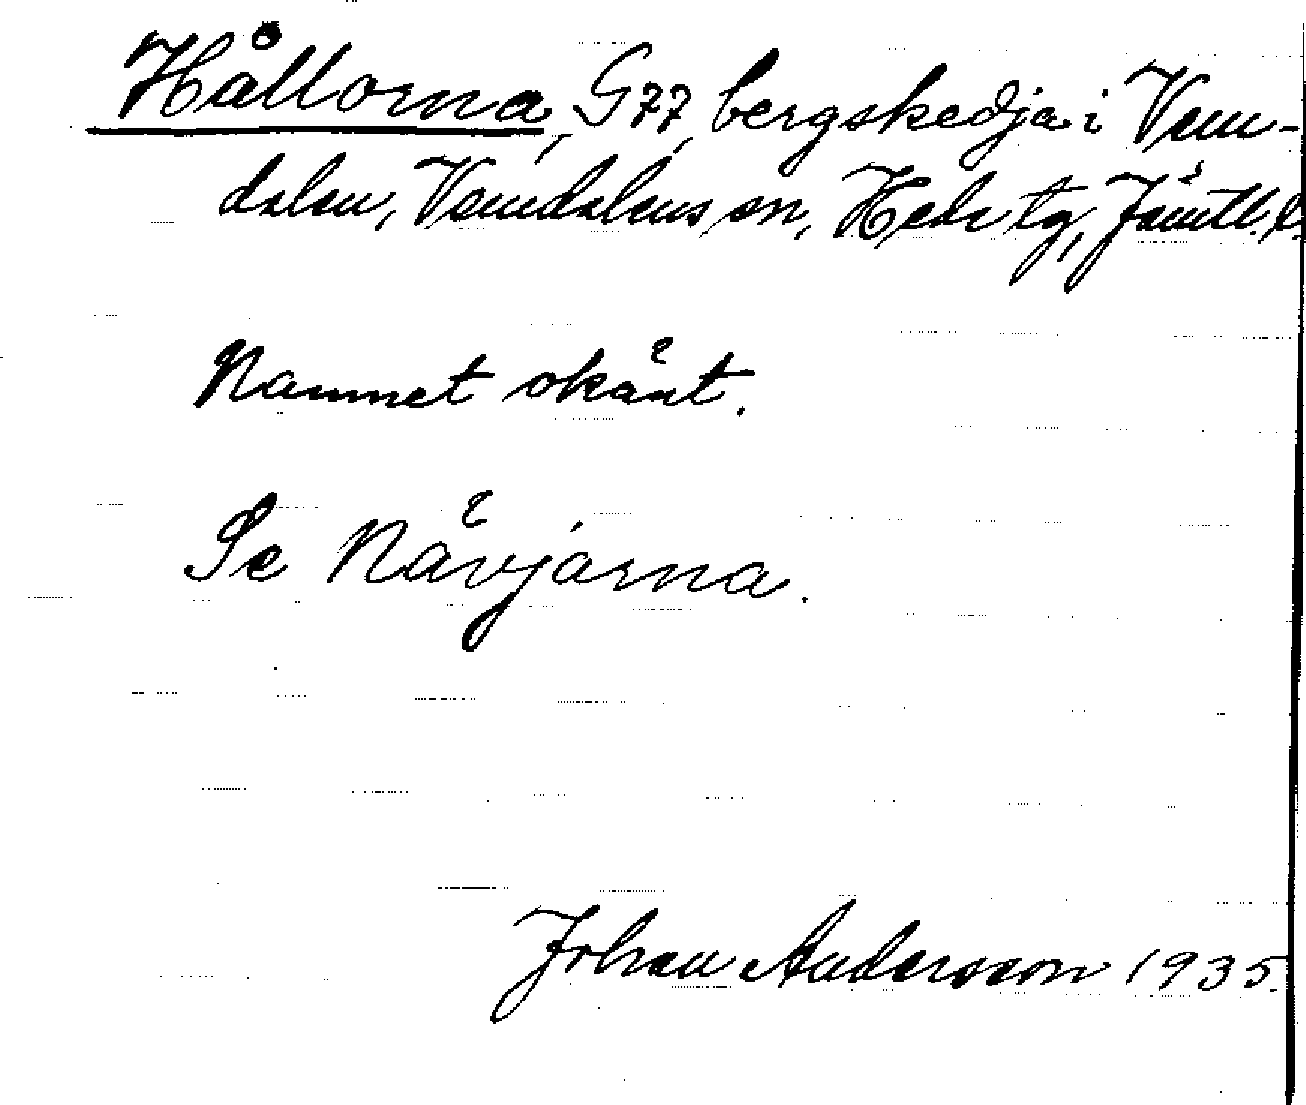 Hållorna, G77, bergskedja i Vem-
dalen, Vemdalens sn, Hede tg, Jämtl. l.
Namnet okänt.
Se Nävjarna.
Johan Andersson 1935.